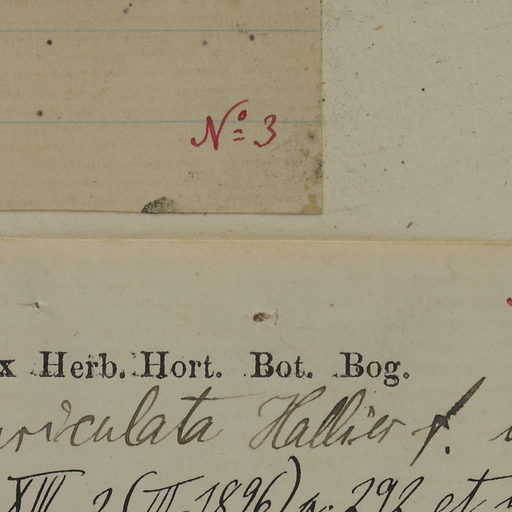 Nº 3
x Herb. Hort. Bot. Bog.
auriculata Hallier f.
XIII, 2 (III. 1896) p. 292 et